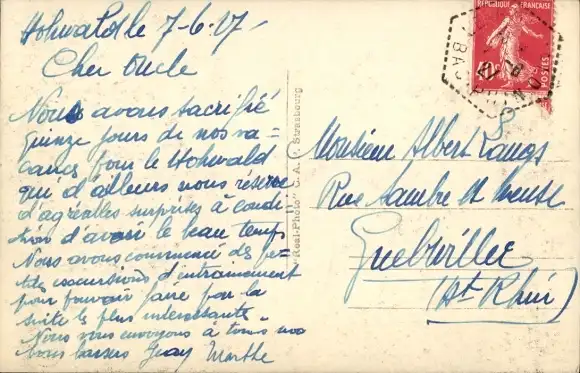 Hohwald le 7-6.27.
Cher Oncle
Nous avons sacrifié
quinze jours de nos va-
cances pour le Hohwald
qui d'ailleurs nous réserve
d'agréables surprises à condi
tion d'avoir le beau temps
Nous avons commencé des pe-
tites excursions d'entrainement
pour pouvoir faire par la
suite les plus intéressante.
Nous vous envoyons à tous nos
bons baisers Marthe
Real-Photo C.A. Strasbourg
RÉPUBLIQUE FRANÇAISE
POSTES
BAS RHIN
Monsieur Albert
Rue Sambre et Meuse
Guebwiller
(Ht. Rhin)